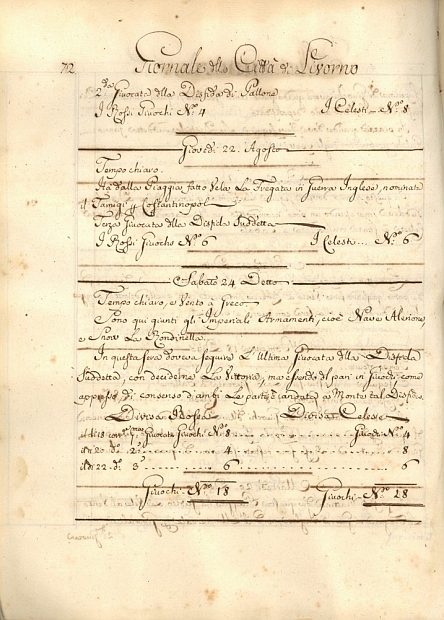 72 Giornale della Città di Livorno
2.da Giuocata della Disfida di Pallone
I Rossi Giuochi N.o 4 I Celesti N.o 8
Giovedì 22. Agosto
Tempo chiaro.
Ha dalla Piaggia fatto Vela La Fregata in Guerra Inglese, nominata
il Tamigi p Costantinopol
Terza Giuocata della Disfida Suddetta
I Rossi Giuochi N.o 6 I Celesti ... N.o 6
Sabato 24 Detto
Tempo chiaro, e Vento à Greco
Sono qui giunti gli Imperiali Armamenti, cioè Nave Alerione,
e Snow La Rondinella.
In questa sera doveva seguire L'Ultima Giuocata della Disfida
Suddetta, con deciderne La Vittoria, ma essendo del pari in Giuochi, come
appresso, di consenso di ambi Le parti è andata à Monte tal Disfida.
Divisa Rossa Divisa Celeste
il dì 18 corr.e p.ma Giuocata Giuochi N.o 8 Giuochi N.o 4
il dì 20 d.o 2.a 4 8
il dì 22 d.o 3.a 6 6
Giuochi N.o 18 Giuochi N.o 18